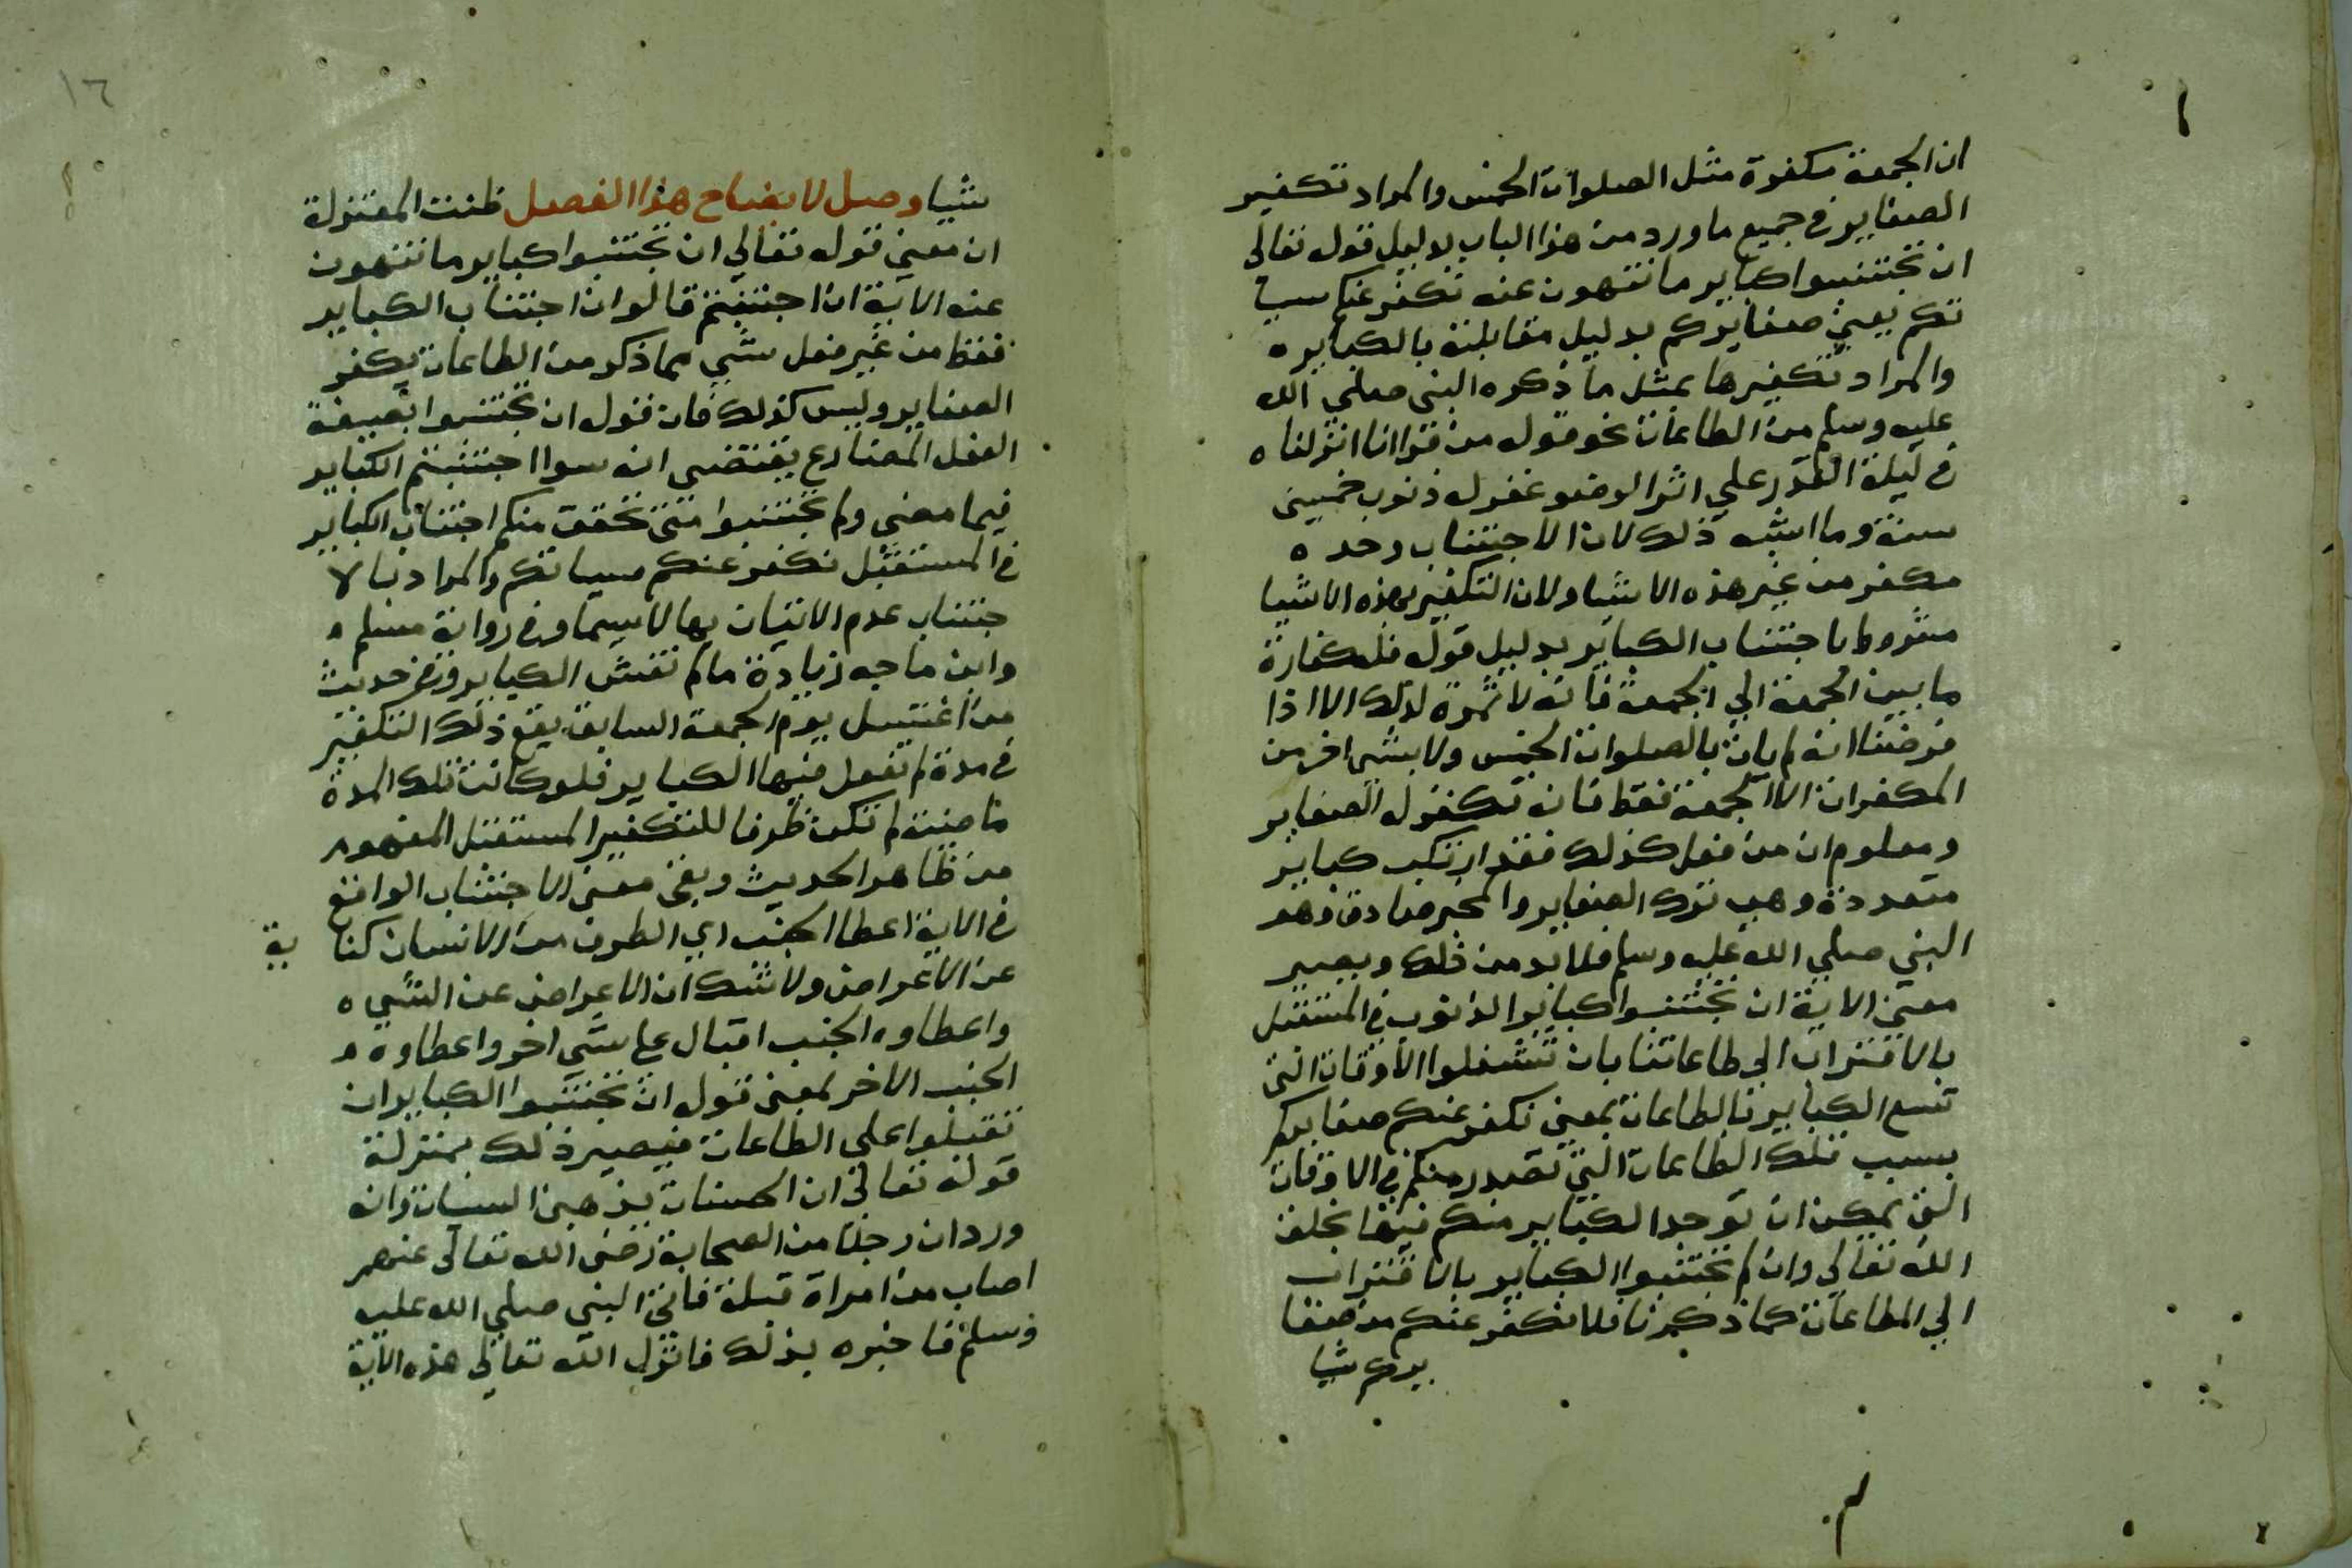 ان الجمعة مكفرة مثل الصلوات الخمس والمراد تكفير
الصغاير في جميع ما ورد من هذا الباب بدليل قوله تعالي
ان تجتنبوا كباير ما تنهون عنه نكفر عنكم سيا
تكم يعني صغايركم بدليل مقابلته بالكباير ه
والمراد تكفيرها بمثل ما ذكره النبي صلي الله
عليه وسلم من الطاعات نحو قوله من قرا انا انزلناه
في ليلة القدر علي اثر الوضو غفر له ذنوب خمسين
سنة وما اشبه ذلك لان الاجتناب وحده ه
مكفر من غير هذه الاشيا ولان التكفير بهذه الاشيا
مشروط باجتناب الكباير بدليل قوله فله كفارة
ما بين الجمعة الي الجمعة فانه لا ثمرة لذلك الا اذا
فرضنا انه لم يات بالصلوات الخمس ولا بشي اخر من
المكفرات الا الجمعة فقط فانه تكفر له الصغاير
ومعلوم ان من فعل كذلك فقد ارتكب كباير
متعددة وهب ترك الصغاير والمخبر صادق وهو
النبي صلي الله عليه وسلم فلا بد من ذلك ويصير
معني الاية ان تجتنبوا كباير الذنوب في المستقبل
بالاقتراب الي طاعاتنا بان تشغلوا الاوقات التي
تسع الكباير بالطاعات بمعني نكفر عنكم صغايركم
بسبب تلك الطاعات التي تصدر منكم في الاوقات
التي يمكن ان توجد الكباير منكم فيها بخلق
الله تعالي وان لم تجتنبوا الكباير بالاقتراب
الي الطاعات كما ذكرنا فلا نكفر عنكم من صغا
يركم شيا
١٦
شيا وصل لايضاح هذا الفصل ظنت المعتزلة
ان معني قوله تعالي ان تجتنبوا كباير ما تنهون
عنه الاية ان اجتنبتم قالوا ان اجتناب الكباير
فقط من غير فعل شي مما ذكر من الطاعات يكفر
الصغاير وليس كذلك فان قوله ان تجتنبوا بصيغة
الفعل المضارع يقتضي انه سوا اجتنبتم الكباير
فيما مضي ولم تجتنبوا متي تحقق منكم اجتناب الكباير
في المستقبل نكفر عنكم سياتكم والمراد بالا
جتناب عدم الاتيان بها لاسيما وفي رواية مسلم ه
وابن ماجه زيادة ما لم تغش الكباير وفي حديث
من اغتسل يوم الجمعة السابق يقع ذلك التكفير
في مدة لم تفعل فيها الكباير فلو كانت تلك المدة
ماضية لم تكن ظرفا للتكفير المستقبل المفهوم
من ظاهر الحديث وبقي معني الاجتناب الواقع
في الاية اعطا الجنب اي الطرف من الانسان كنا ية
عن الاعراض ولا شك ان الاعراض عن الشي ه
واعطاوه الجنب اقبال علي شي اخر واعطاوه ه
الجنب الاخر بمعني قوله ان تجتنبوا الكباير ان
تقبلوا علي الطاعات فيصير ذلك بمنزلة
قوله تعالي ان الحسنات يذهبن السيات وانه
ورد ان رجلا من الصحابة رضي الله تعالي عنهم
اصاب من امراة قبلة فاتي النبي صلي الله عليه
وسلم فاخبره بذلك فانزل الله تعالي هذه الاية